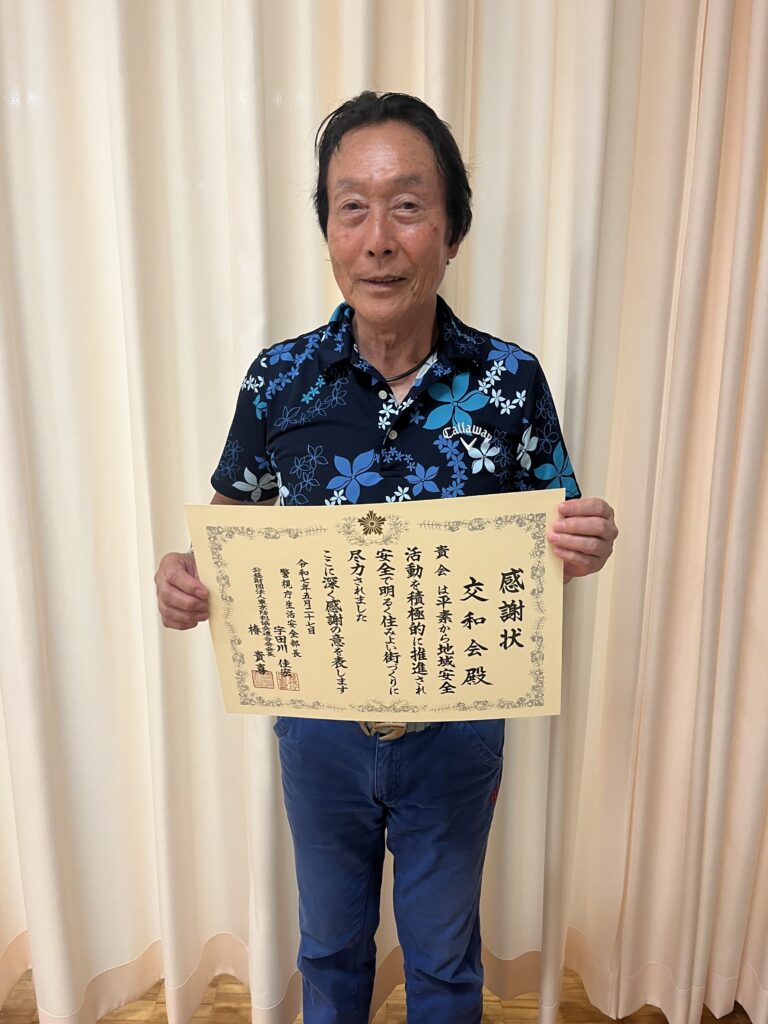 感謝状
交和会殿
貴会は平素から地域安全
活動を積極的に推進され
安全で明るく住みよい街づくりに
尽力されました
ここに深く感謝の意を表します
令和七年五月二十七日
警視庁生活安全部長
宇田川佳宏
公益財団法人東京防犯協会連合会会長
椿貴喜
Callaway